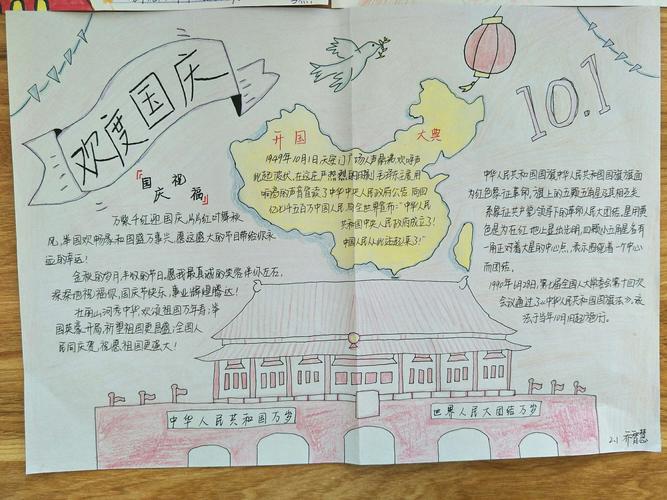 欢度国庆
10.1
『国庆
祝福』
万象千红迎国庆,
风,举国欢畅泰和国盛万事兴,愿这盛大的节日带给你永
远的幸运!
金秋的岁月,丰收的节日,愿我最真诚的笑容伴你左右,
深深地祝福你,国庆节快乐,事业辉煌腾达!
壮丽山河秀中华,欢颂祖国万年寿;举
国英豪开局,祈望祖国更昌盛;全国人
民同庆贺,祝愿祖国更强大!
开国 大典
1949年10月1日天安门广场人声鼎沸,欢呼声
此起彼伏,在这庄严
响亮的声音宣读了中华中央人民政府公告,同四
亿七千五百万中国人民与全世界宣布:"中华人民
共和国中央人民政府成立了!
中国人民从此站起来了!"
中华人民共和国国旗中华人民共和国国旗旗面
为红色象征革命,旗上的五颗五角星及其相互关
系象征共产党领导下的革命人民大团结,星用黄
色是为在红地上显出光明,四颗小五角星各有
一角正对着大星的中心点,表示围绕着一个中心
而团结。
1990年6月28日,第七届全国人大常委会第十四次
会议通过了《中华人民共和国国旗法》,该
法于当年10月1日起施行。
中华人民共和国万岁
世界人民大团结万岁
2.1